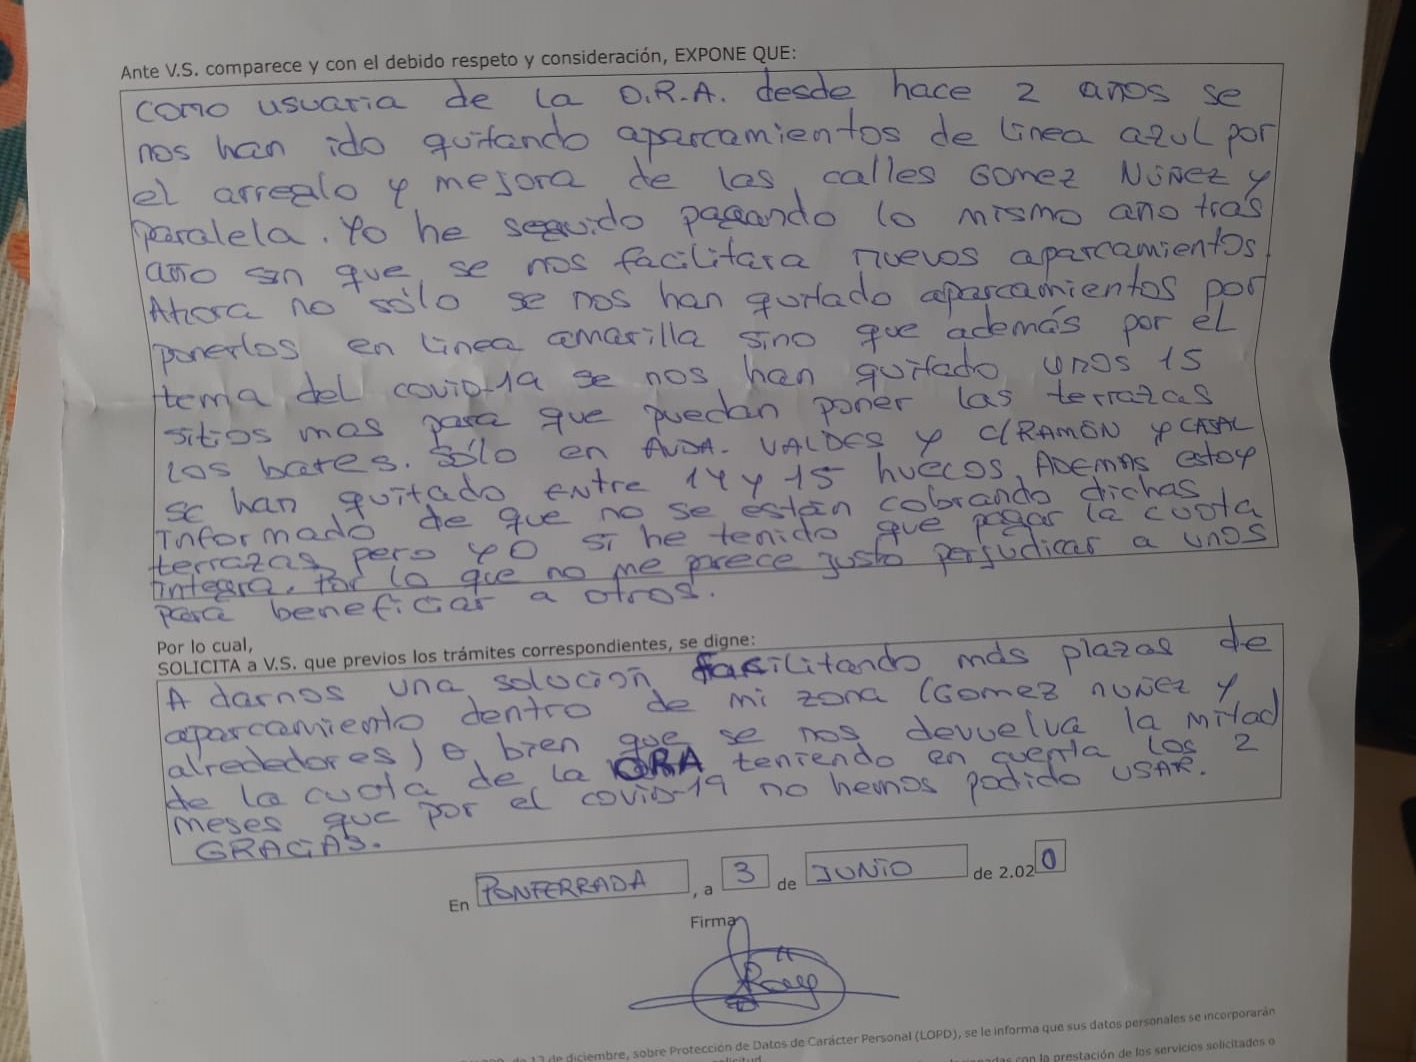 Ante V.S. comparece y con el debido respeto y consideración, EXPONE QUE:
como usuaria de la O.R.A. desde hace 2 años se
nos han ido quitando aparcamientos de linea azul por
el arreglo y mejora de las calles Gomez Núñez y
paralela. Yo he seguido pagando lo mismo año tras
año sin que se nos facilitara nuevos aparcamientos.
Ahora no sólo se nos han quitado aparcamientos por
ponerlos en linea amarilla sino que además por el
tema del covid-19 se nos han quitado unos 15
sitios mas para que puedan poner las terrazas
los bares. Sólo en AVDA. VALDES y C/RAMÓN Y CAJAL
se han quitado entre 14 y 15 huecos. ADEMÁS estoy
informado de que no se están cobrando dichas
terrazas pero yo si he tenido que pagar la cuota
integra. Por lo que no me parece justo perjudicar a unos
para beneficiar a otros.
Por lo cual,
SOLICITA a V.S. que previos los trámites correspondientes, se digne:
A darnos una solución facilitando más plazas de
aparcamiento dentro de mi zona (Gomez nuñez y
alrededores) o bien que se nos devuelva la mitad
de la cuota de la ORA teniendo en cuenta los 2
meses que por el covid-19 no hemos podido USAR.
GRACIAS.
En PONFERRADA, a 3 de JUNIO de 2.020
Firma
de 13 de diciembre, sobre Protección de Datos de Carácter Personal (LOPD), se le informa que sus datos personales se incorporarán
con la prestación de los servicios solicitados o